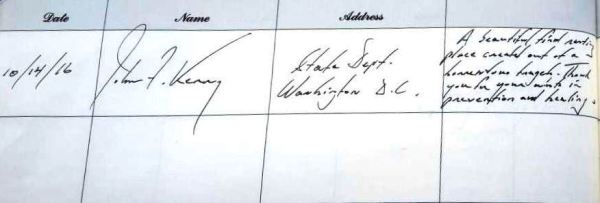 Date Name Address
10/14/16 John F. Kerry State Dept.
Washington D.C.
A beautiful final resting
place created out of a
horrendous tragedy. Thank
you for your work in
prevention and healing.